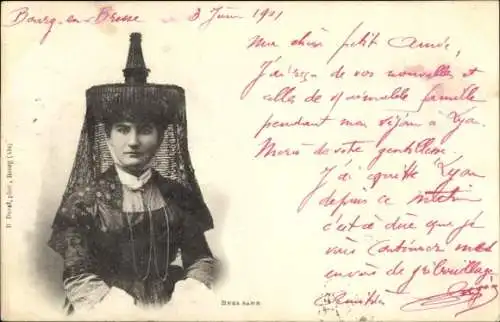 Bourg-en-Bresse 3 Juin 1901
Mon cher petit André,
J'ai reçu de vos nouvelles et
celles de l'aimable famille
pendant mon séjour à Lyon.
Merci de votre gentillesse.
J'ai quitté Lyon
depuis ce matin
c'est à dire que je
vais continuer mes
envois de gribouillage
B. Ducaf, phot., Bourg (Ain)
BRESSANE